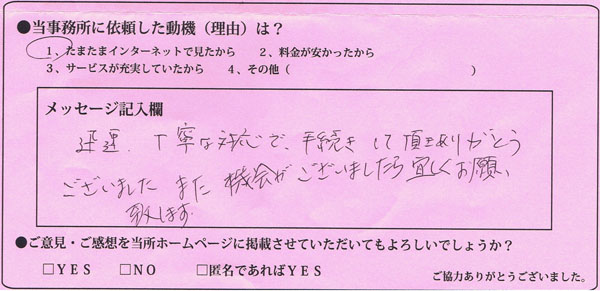 ●当事務所に依頼した動機（理由）は？
1、たまたまインターネットで見たから　2、料金が安かったから
3、サービスが充実していたから　4、その他（　　　　　　　　　　）
メッセージ記入欄
迅速、丁寧な対応で、手続きして頂きありがとう
ございました また 機会がございましたら宜しくお願い
致します
●ご意見・ご感想を当所ホームページに掲載させていただいてもよろしいでしょうか？
□YES　□NO　□匿名であればYES
ご協力ありがとうございました。